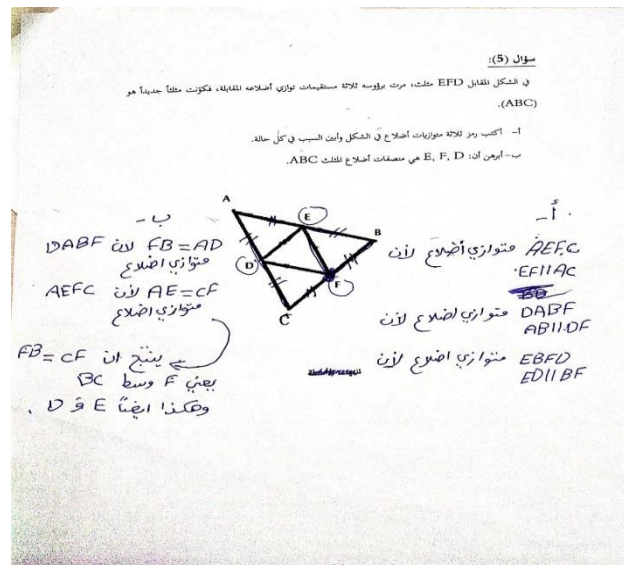 سؤال (5):
في الشكل المقابل EFD مثلث، مرت برؤوسه ثلاثة مستقيمات توازي أضلاعه المقابلة، فكوّنت مثلثاً جديداً هو
(ABC).
أ- أكتب رمز ثلاثة متوازيات أضلاع في الشكل وأبين السبب في كل حالة.
ب- أبرهن أن: E, F, D هي منصفات أضلاع المثلث ABC.
أ-
AEFC متوازي أضلاع لأن
EF//AC
DABF متوازي اضلاع لأن
AB//DF
EBFD متوازي اضلاع لأن
ED//BF
A
E
B
D
F
C
ب-
FB = AD لأن DABF
متوازي اضلاع
AE = CF لأن AEFC
متوازي اضلاع
ينتج ان FB = CF
يعني F وسط BC
وهكذا ايضاً E و D.